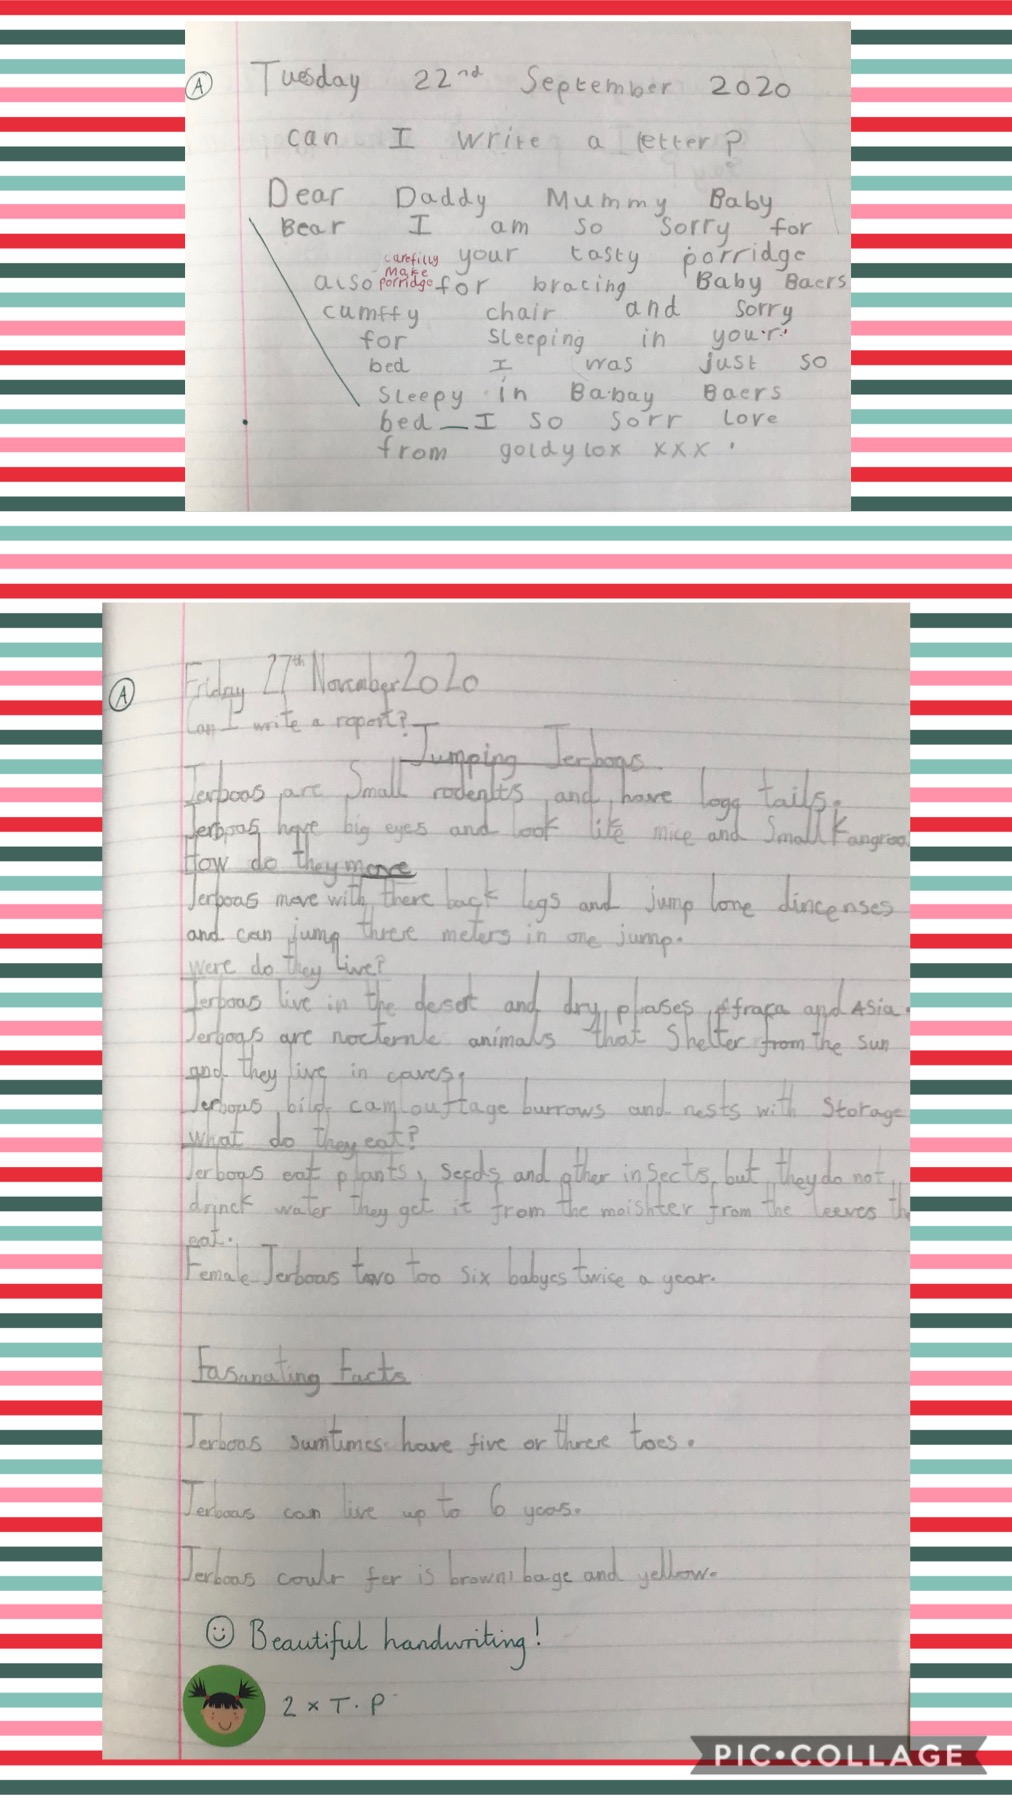 A
Tuesday 22nd September 2020
can I write a letter?
Dear Daddy Mummy Baby
Bear I am so sorry for
your tasty porridge
carefilly
make
porridge
also for bracing Baby Baers
cumffy chair and sorry
for sleeping in your
bed I was just so
sleepy in Babay Baers
bed I so sorr love
from goldylox xxx
A
Friday 27th November 2020
Can I write a report?
Jumping Jerboas
Jerboas are Small rodents and have logg tails.
Jerboas have big eyes and look like mice and Small Kangroo
How do they move
Jerboas move with there back legs and jump lone dincenses
and can jump threre meters in one jump.
were do they live?
Jerboas live in the desert and dry plases Afraca and Asia.
Jerboas are nocternle animals that Shelter from the sun
and they live in caves.
Jerboas bild camlouftage burrows and nests with Storage
what do they eat?
Jerboas eat plants, seeds and other insects, but they do not
drinck water they get it from the moishter from the leeves th
eat.
Female Jerboas two too six babyes twice a year.
Fasanating Facts
Jerboas sumtimes have five or threre toes.
Jerboas can live up to 6 yeas.
Jerboas coulr fer is brown, bage and yellow.
Beautiful handwriting!
2 x T.P
PIC•COLLAGE